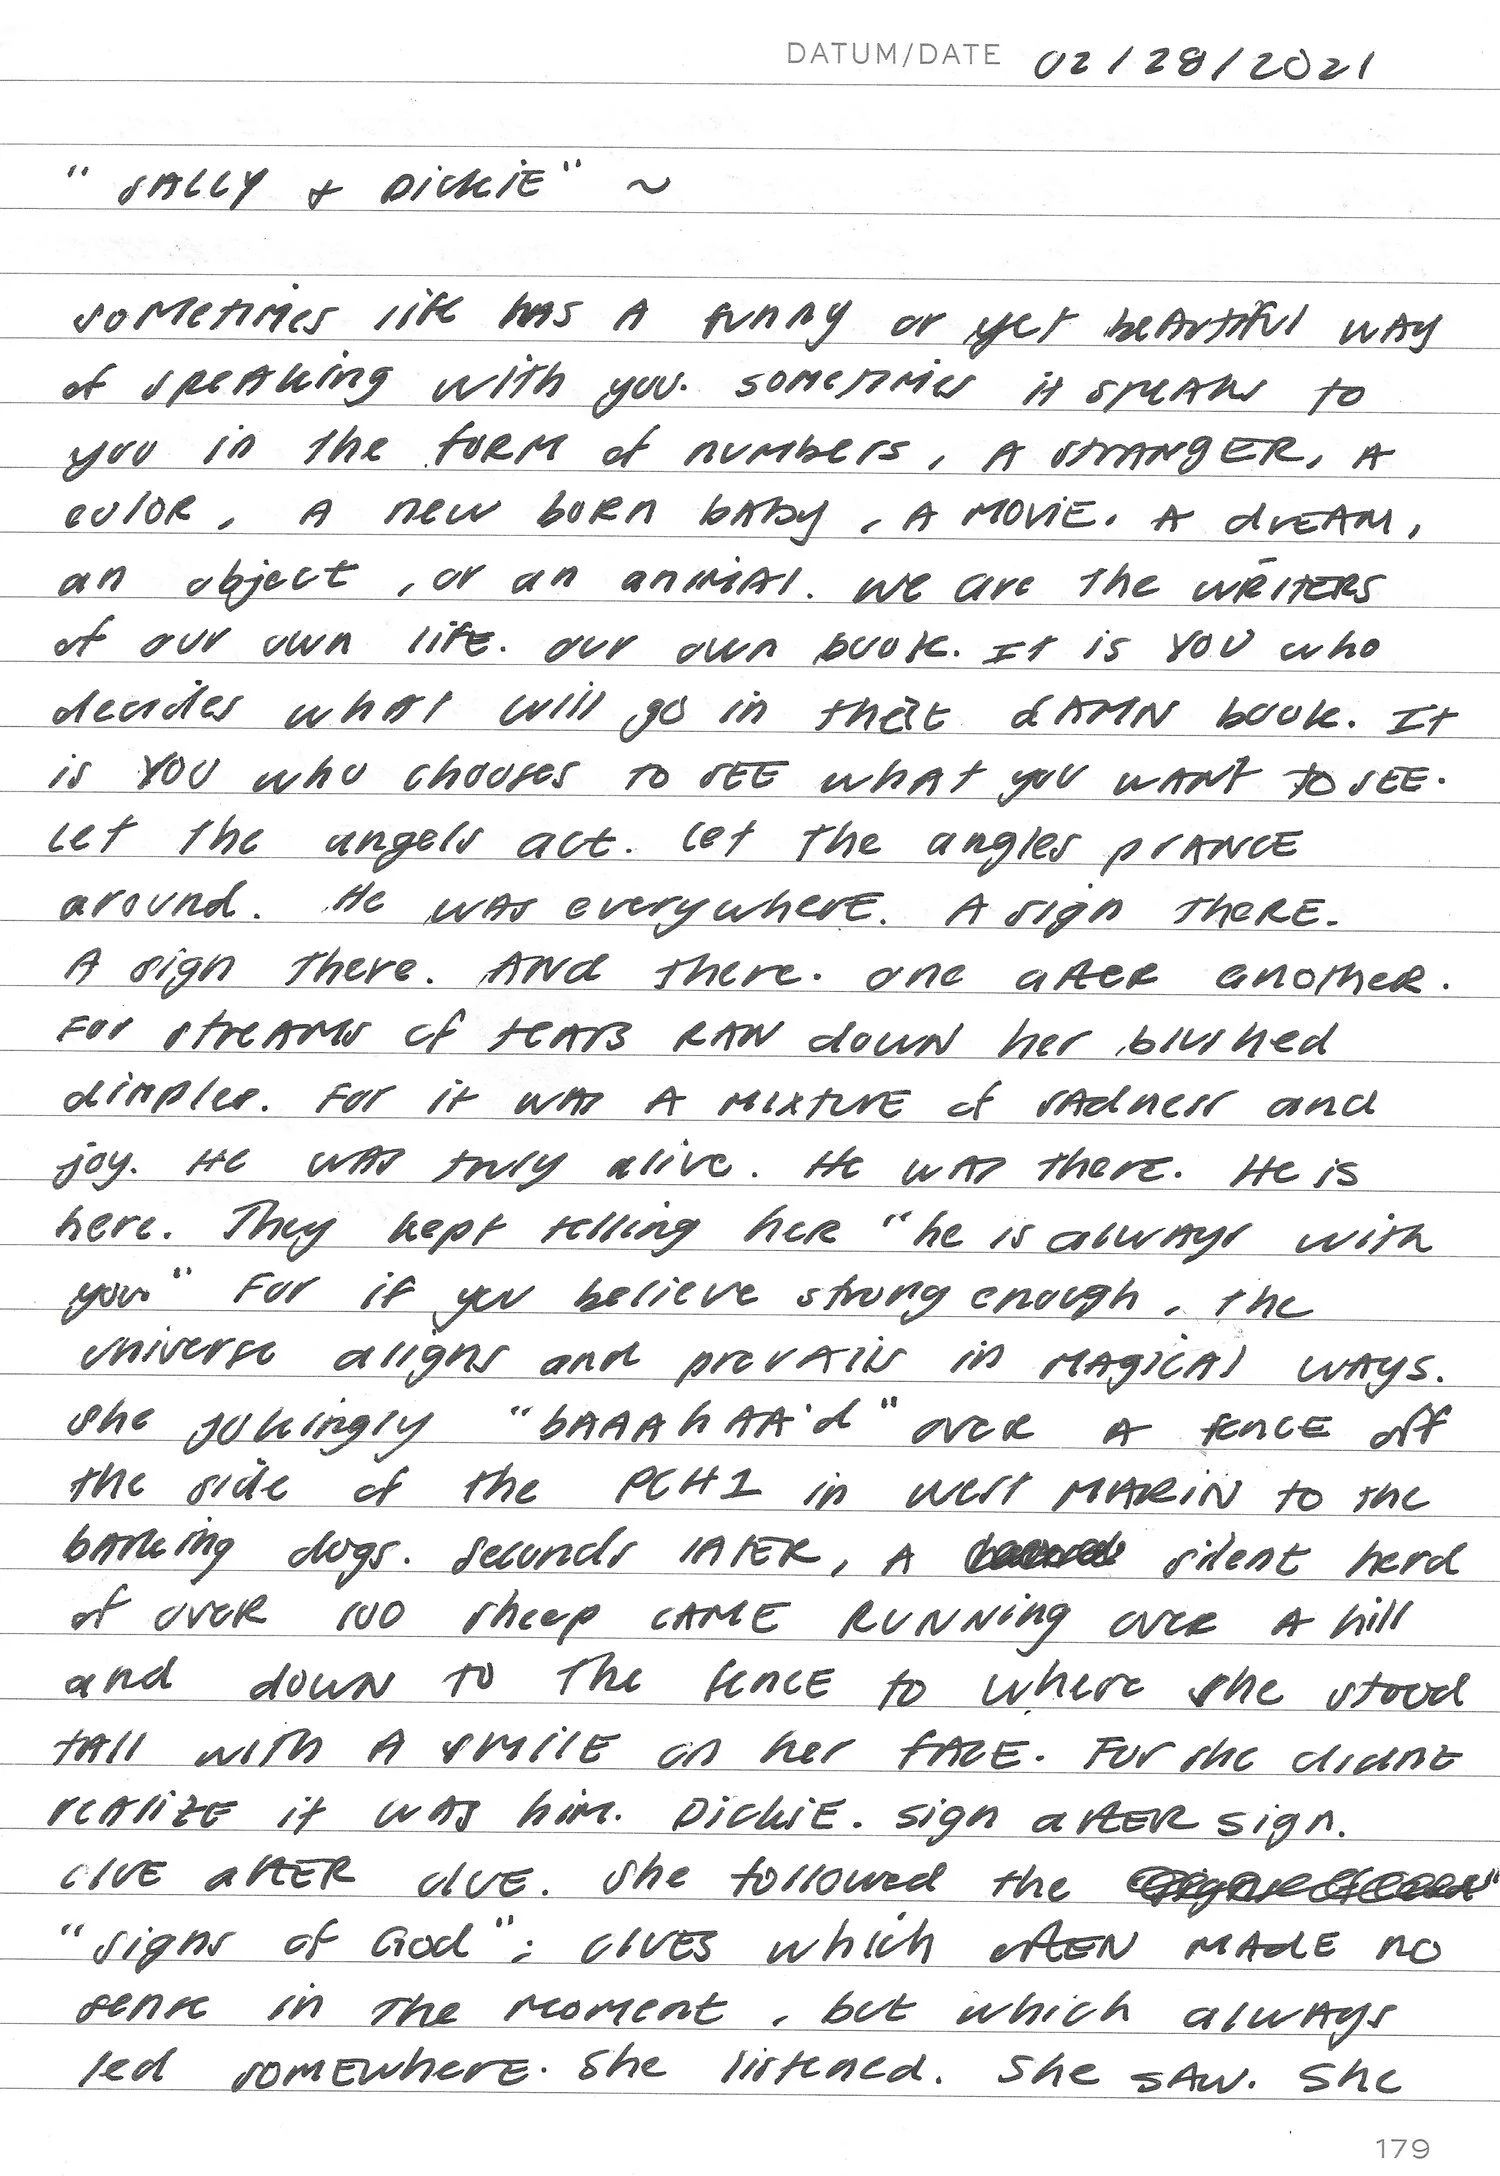 DATUM/DATE 02/28/2021
"SALLY + DICKIE" ~
sometimes life has A funny or yet beautiful way
of speaking with you. sometimes it speaks to
you in the form of numbers, A STRANGER, A
color, A new born baby, A MOVIE, A dream,
an object, or an animal. we are the writers
of our own life. our own book. It is YOU who
decides what will go in that DAMN book. It
is YOU who chooses to SEE what you want to SEE.
Let the angels act. Let the angles prance
around. He was everywhere. A sign there.
A sign there. And there. one after another.
For streams of tears ran down her blushed
dimples. For it was A mixture of sadness and
joy. He was truly alive. He was there. He is
here. They kept telling her "he is always with
you." For if you believe strong enough, the
universe aligns and prevails in magical ways.
she jokingly "bAAAhAA'd" over A fence off
the side of the PCH1 in west MARIN to the
barking dogs. seconds later, A silent herd
of over 100 sheep came running over A hill
and down to the fence to where she stood
tall with A smile on her face. For she didnt
realize it was him. Dickie. sign after sign.
clue after clue. she followed the
"signs of God"; clues which often made no
sense in the moment, but which always
led somewhere. She listened. She saw. She
179